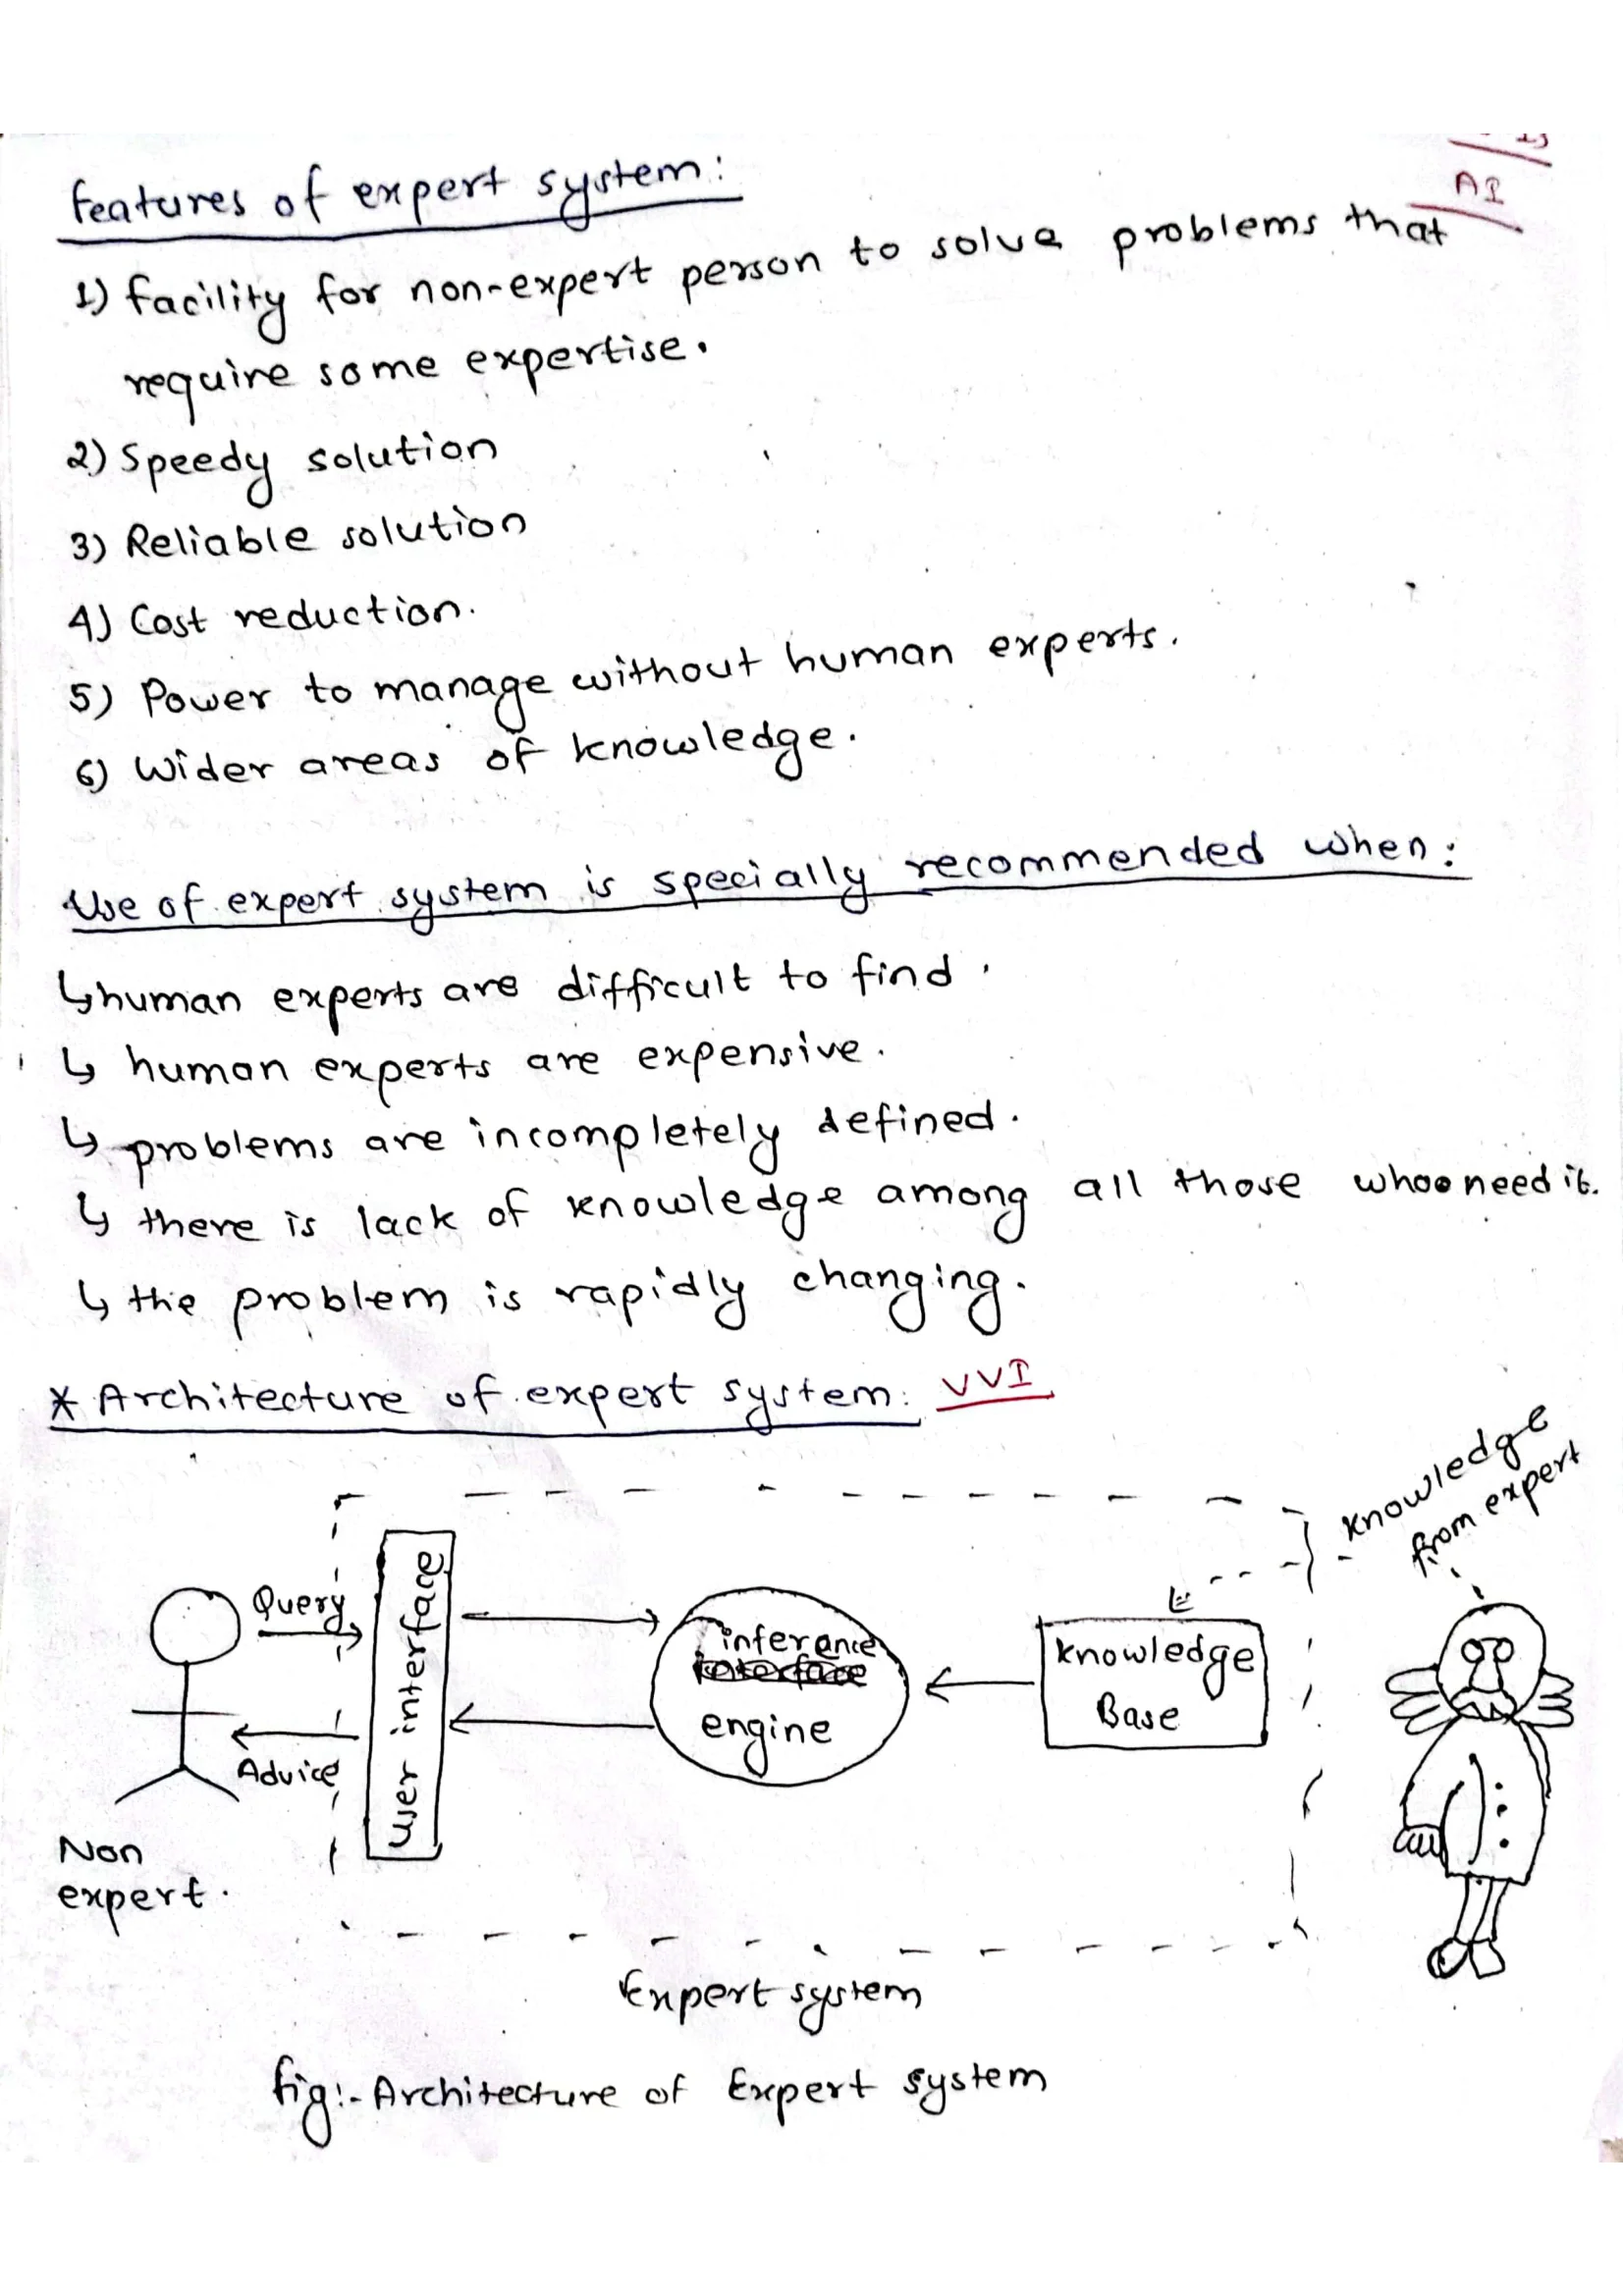 AI
features of expert system:
1) facility for non-expert person to solve problems that
require some expertise.
2) Speedy solution
3) Reliable solution
4) Cost reduction.
5) Power to manage without human experts.
6) Wider areas of knowledge.
Use of expert system is specially recommended when:
↳ human experts are difficult to find.
↳ human experts are expensive.
↳ problems are incompletely defined.
↳ there is lack of knowledge among all those whoo need it.
↳ the problem is rapidly changing.
* Architecture of expert system: VVI
knowledge
from expert
Query
user interface
inferance
engine
knowledge
Base
Advice
Non
expert.
Expert system
fig:- Architecture of Expert system